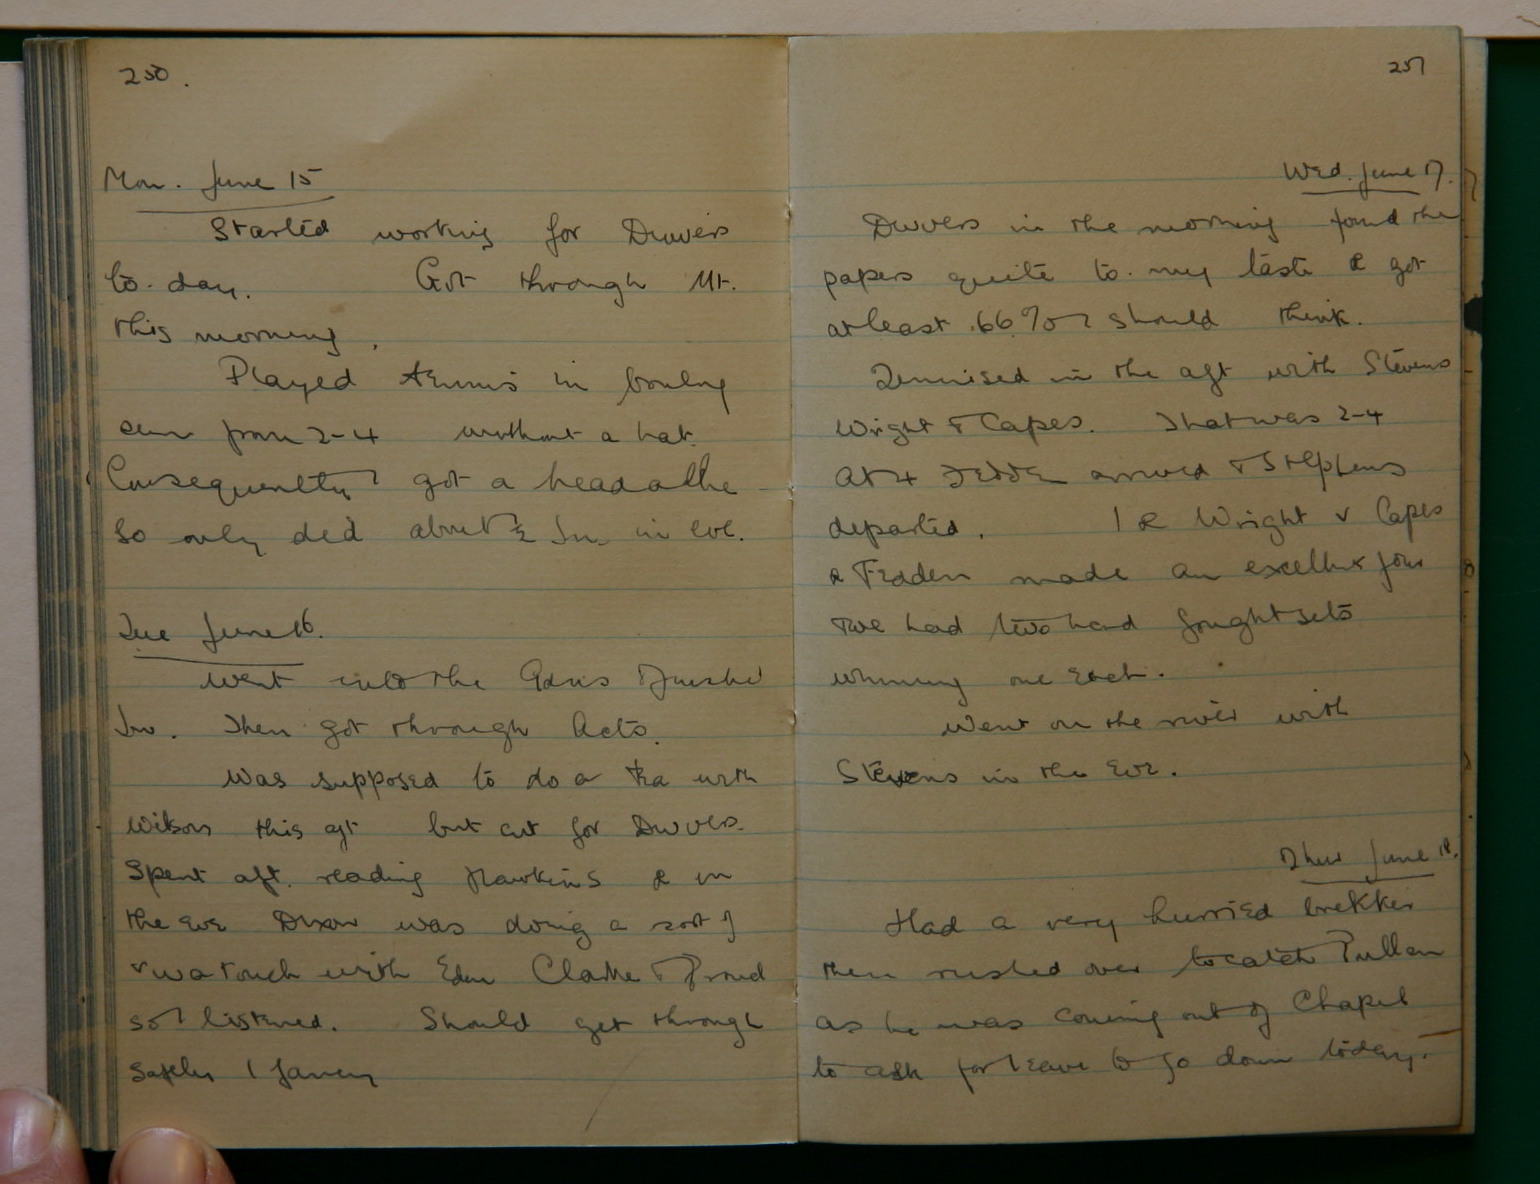 250.
Mon. June 15
Started working for Divvers
to-day. Got through Mt.
this morning.
Played tennis in
from 2-4 without a hat.
Consequently I got a headache
so only did about ½ Jn. in eve.
Tue June 16.
Went into the finished
Jn. Then got through Acts.
Was supposed to do a tea with
Wilson this aft but cut for Divvers.
Spent aft. reading Hawkins & in
the eve Dixon was doing a sort of
viva touch with Edm Clarke & Proud
so I listened. Should get through
safely I fancy
251
Wed. June 17.
Divvers in the morning found the
papers quite to my taste & got
at least 66% I should think.
Tennised in the aft with Stevens
Wright & Capes. That was 2-4
At 4 Fedden arrived & Stephens
departed. I & Wright v Capes
& Fedden made an excellent four
& we had two hard fought sets
winning one each.
Went on the river with
Stevens in the eve.
Thur June 18.
Had a very hurried brekker
then rushed over to catch Pullan
as he was coming out of Chapel
to ask for leave to go down today.